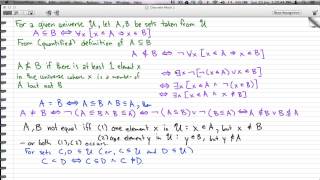 For a given universe 𝒰, let A, B be sets taken from 𝒰
A ⊆ B ⟺ ∀x [x ∈ A ⇒ x ∈ B]
From (quantified) definition of A ⊆ B
A ⊈ B ⟺ ¬∀x [x ∈ A ⇒ x ∈ B]
A ⊈ B if there is at least 1 element x
in the universe where x is a member of
A but not B
⟺ ∃x ¬[¬(x ∈ A) ∨ x ∈ B]
⟺ ∃x [x ∈ A ∧ x ∉ B]
A = B ⟺ (A ⊆ B ∧ B ⊆ A), then
A ≠ B ⟺ ¬(A ⊆ B ∧ B ⊆ A) ⟺ ¬(A ⊆ B) ∨ ¬(B ⊆ A) ⟺ A ⊈ B ∨ B ⊈ A
A, B not equal iff (1) one element x in 𝒰: x ∈ A, but x ∉ B
(2) one element y in 𝒰: y ∈ B, but y ∉ A
- or both (1), (2) occur.
For sets C, D ⊆ 𝒰 (or, C ⊆ 𝒰 and D ⊆ 𝒰)
C ⊂ D ⟺ C ⊆ D ∧ C ≠ D.